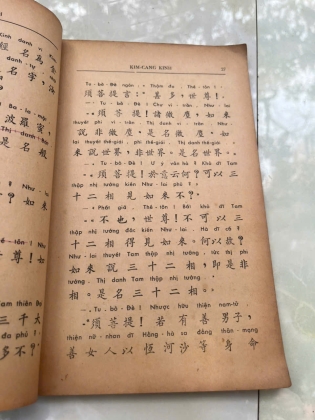 KIM-CANG KINH
27
Tu-bồ-Đề ngôn: Thậm đa, Thế-tôn!
須菩提言:甚多,世尊!
Tu-bồ-Đề! Chư vi-trần, Như-lai
須菩提!諸微塵,如
thuyết phi vi-trần, thị danh vi-trần. Như-
來說非微塵,是名微塵。如
lai thuyết thế-giới phi thế-giới, thị danh thế-giới.
來說世界,非世界,是名世界。
Tu-bồ-Đề! Ư ý vân hà? Khả dĩ Tam
須菩提!於意云何?可以三
thập nhị tướng kiến Như-lai phủ?
十二相見如來不?
Phất dã, Thế-tôn! Bất khả dĩ Tam
不也,世尊!不可以三
thập nhị tướng đắc kiến Như-lai. Hà dĩ cố?
十二相得見如來。何以故?
Như-lai thuyết Tam thập nhị tướng, tức thị phi
如來說三十二相,即是非
tướng. Thị danh Tam thập nhị tướng.
相。是名三十二相。
Tu-bồ-Đề! Nhược hữu thiện nam-tử,
須菩提!若有善男子,
thiện nữ-nhơn dĩ Hằng-hà sa đẳng thân-mạng
善女人以恆河沙等身命